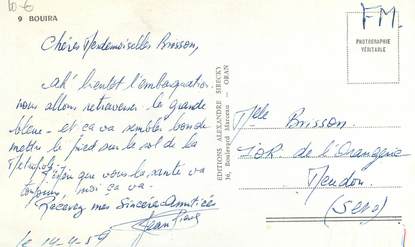 10 €
9 BOUIRA
Chères Mesdemoiselles Brisson,
Ah! bientôt l'embarquation.
nous allons retraverser la grande
bleue - et ça va sembler bon de
mettre le pied sur le sol de la
Métropole.
J'éspère que vous la santé va
toujours, moi ça va.
Recevez mes Sincères Amitiés
Jean
le 14-4-59
EDITIONS ALEXANDRE SIRECKY
16, Boulevard Marceau - ORAN
F.M.
PHOTOGRAPHIE
VÉRITABLE
Melle Brisson
de l'Orangerie
Meudon
(S et O)